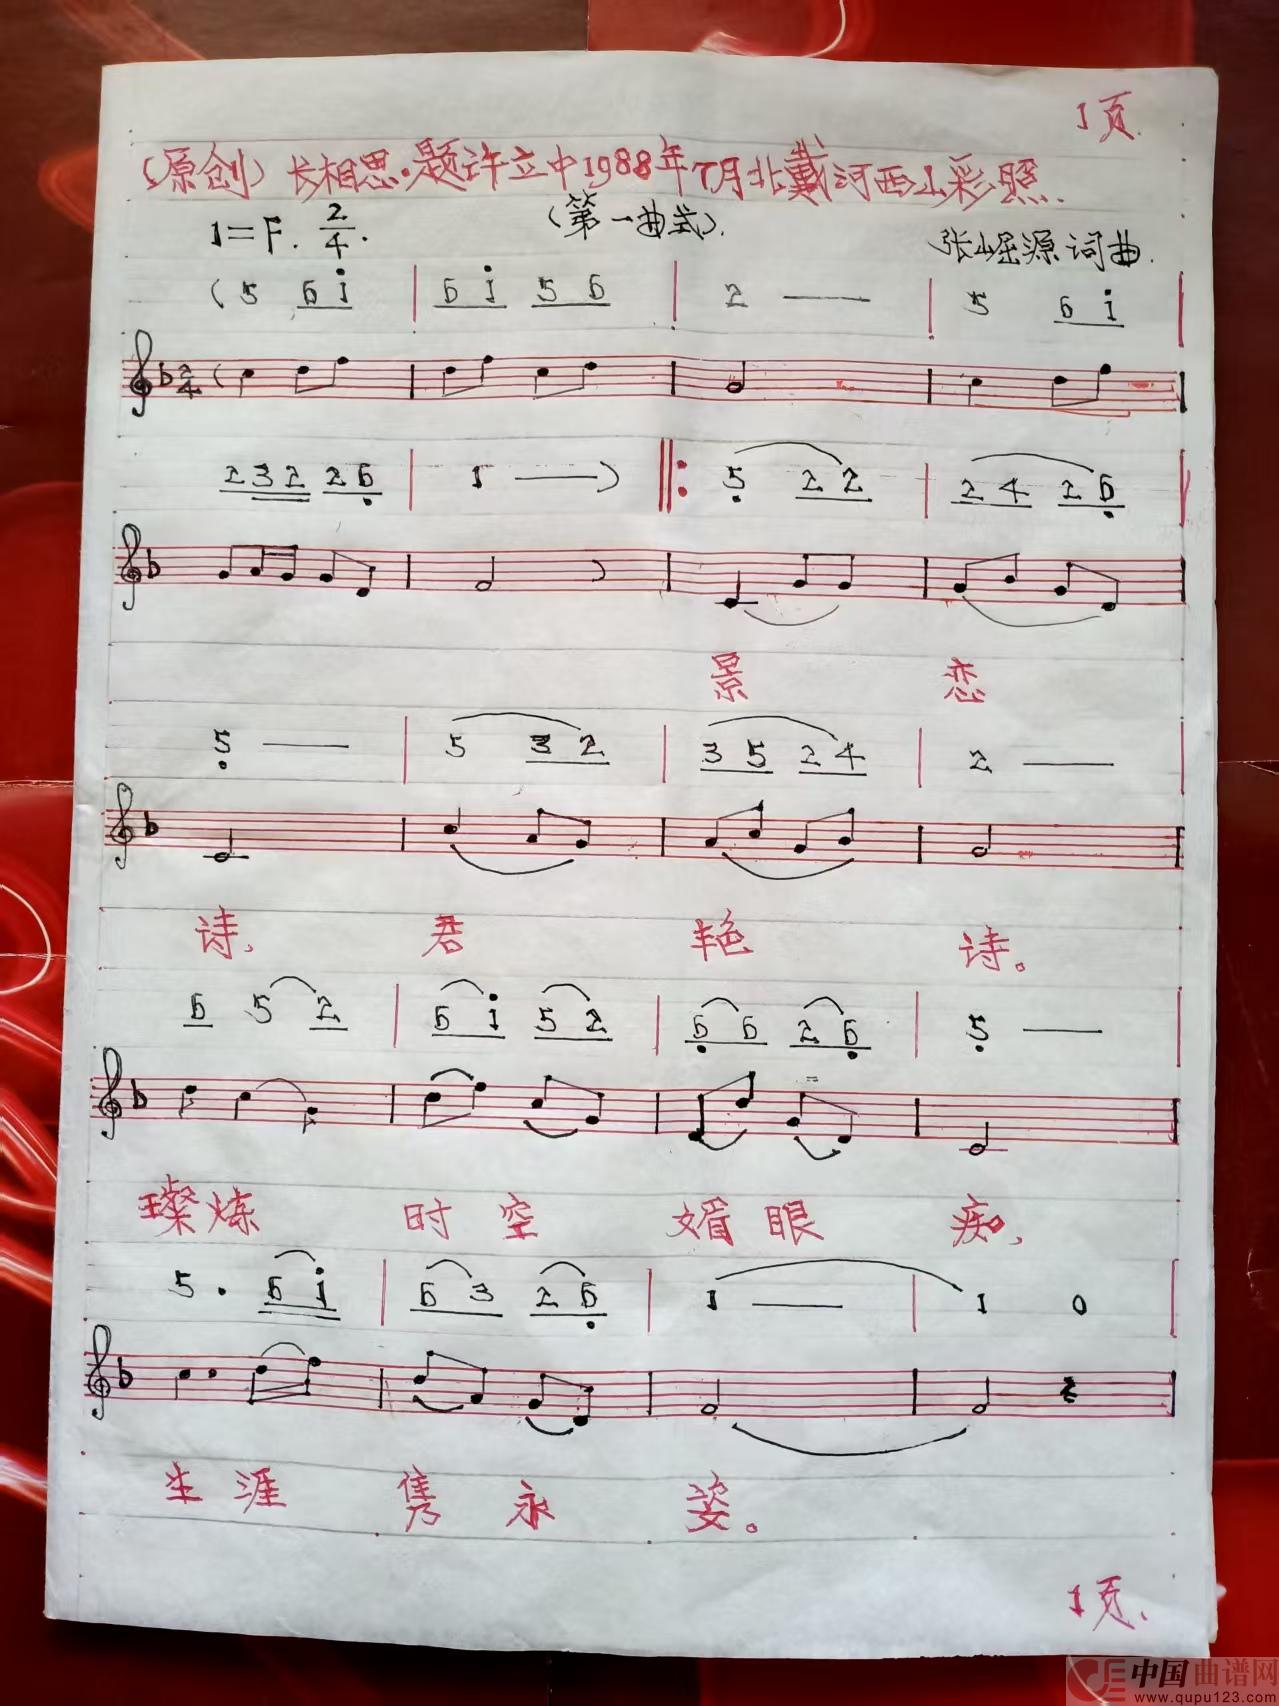 1页.
(原创)长相思·题许立中1988年7月北戴河西山彩照.
1=F. 2/4. (第一曲式).
张崛源 词曲.
(5 6i | 6i 56 | 2 — | 5 6i |
232 26 | 1 — ) ‖: 5 22 | 24 26 |
景 恋
5 — | 5 32 | 35 24 | 2 — |
诗, 君 艳 诗。
6 5 2 | 6i 52 | 66 26 | 5 — |
璨炼 时空 媚眼 痴,
5 · 6i | 63 26 | 1 — | 1 0 |
生涯 隽永 姿。
1页.
中国曲谱网
www.qupu123.com